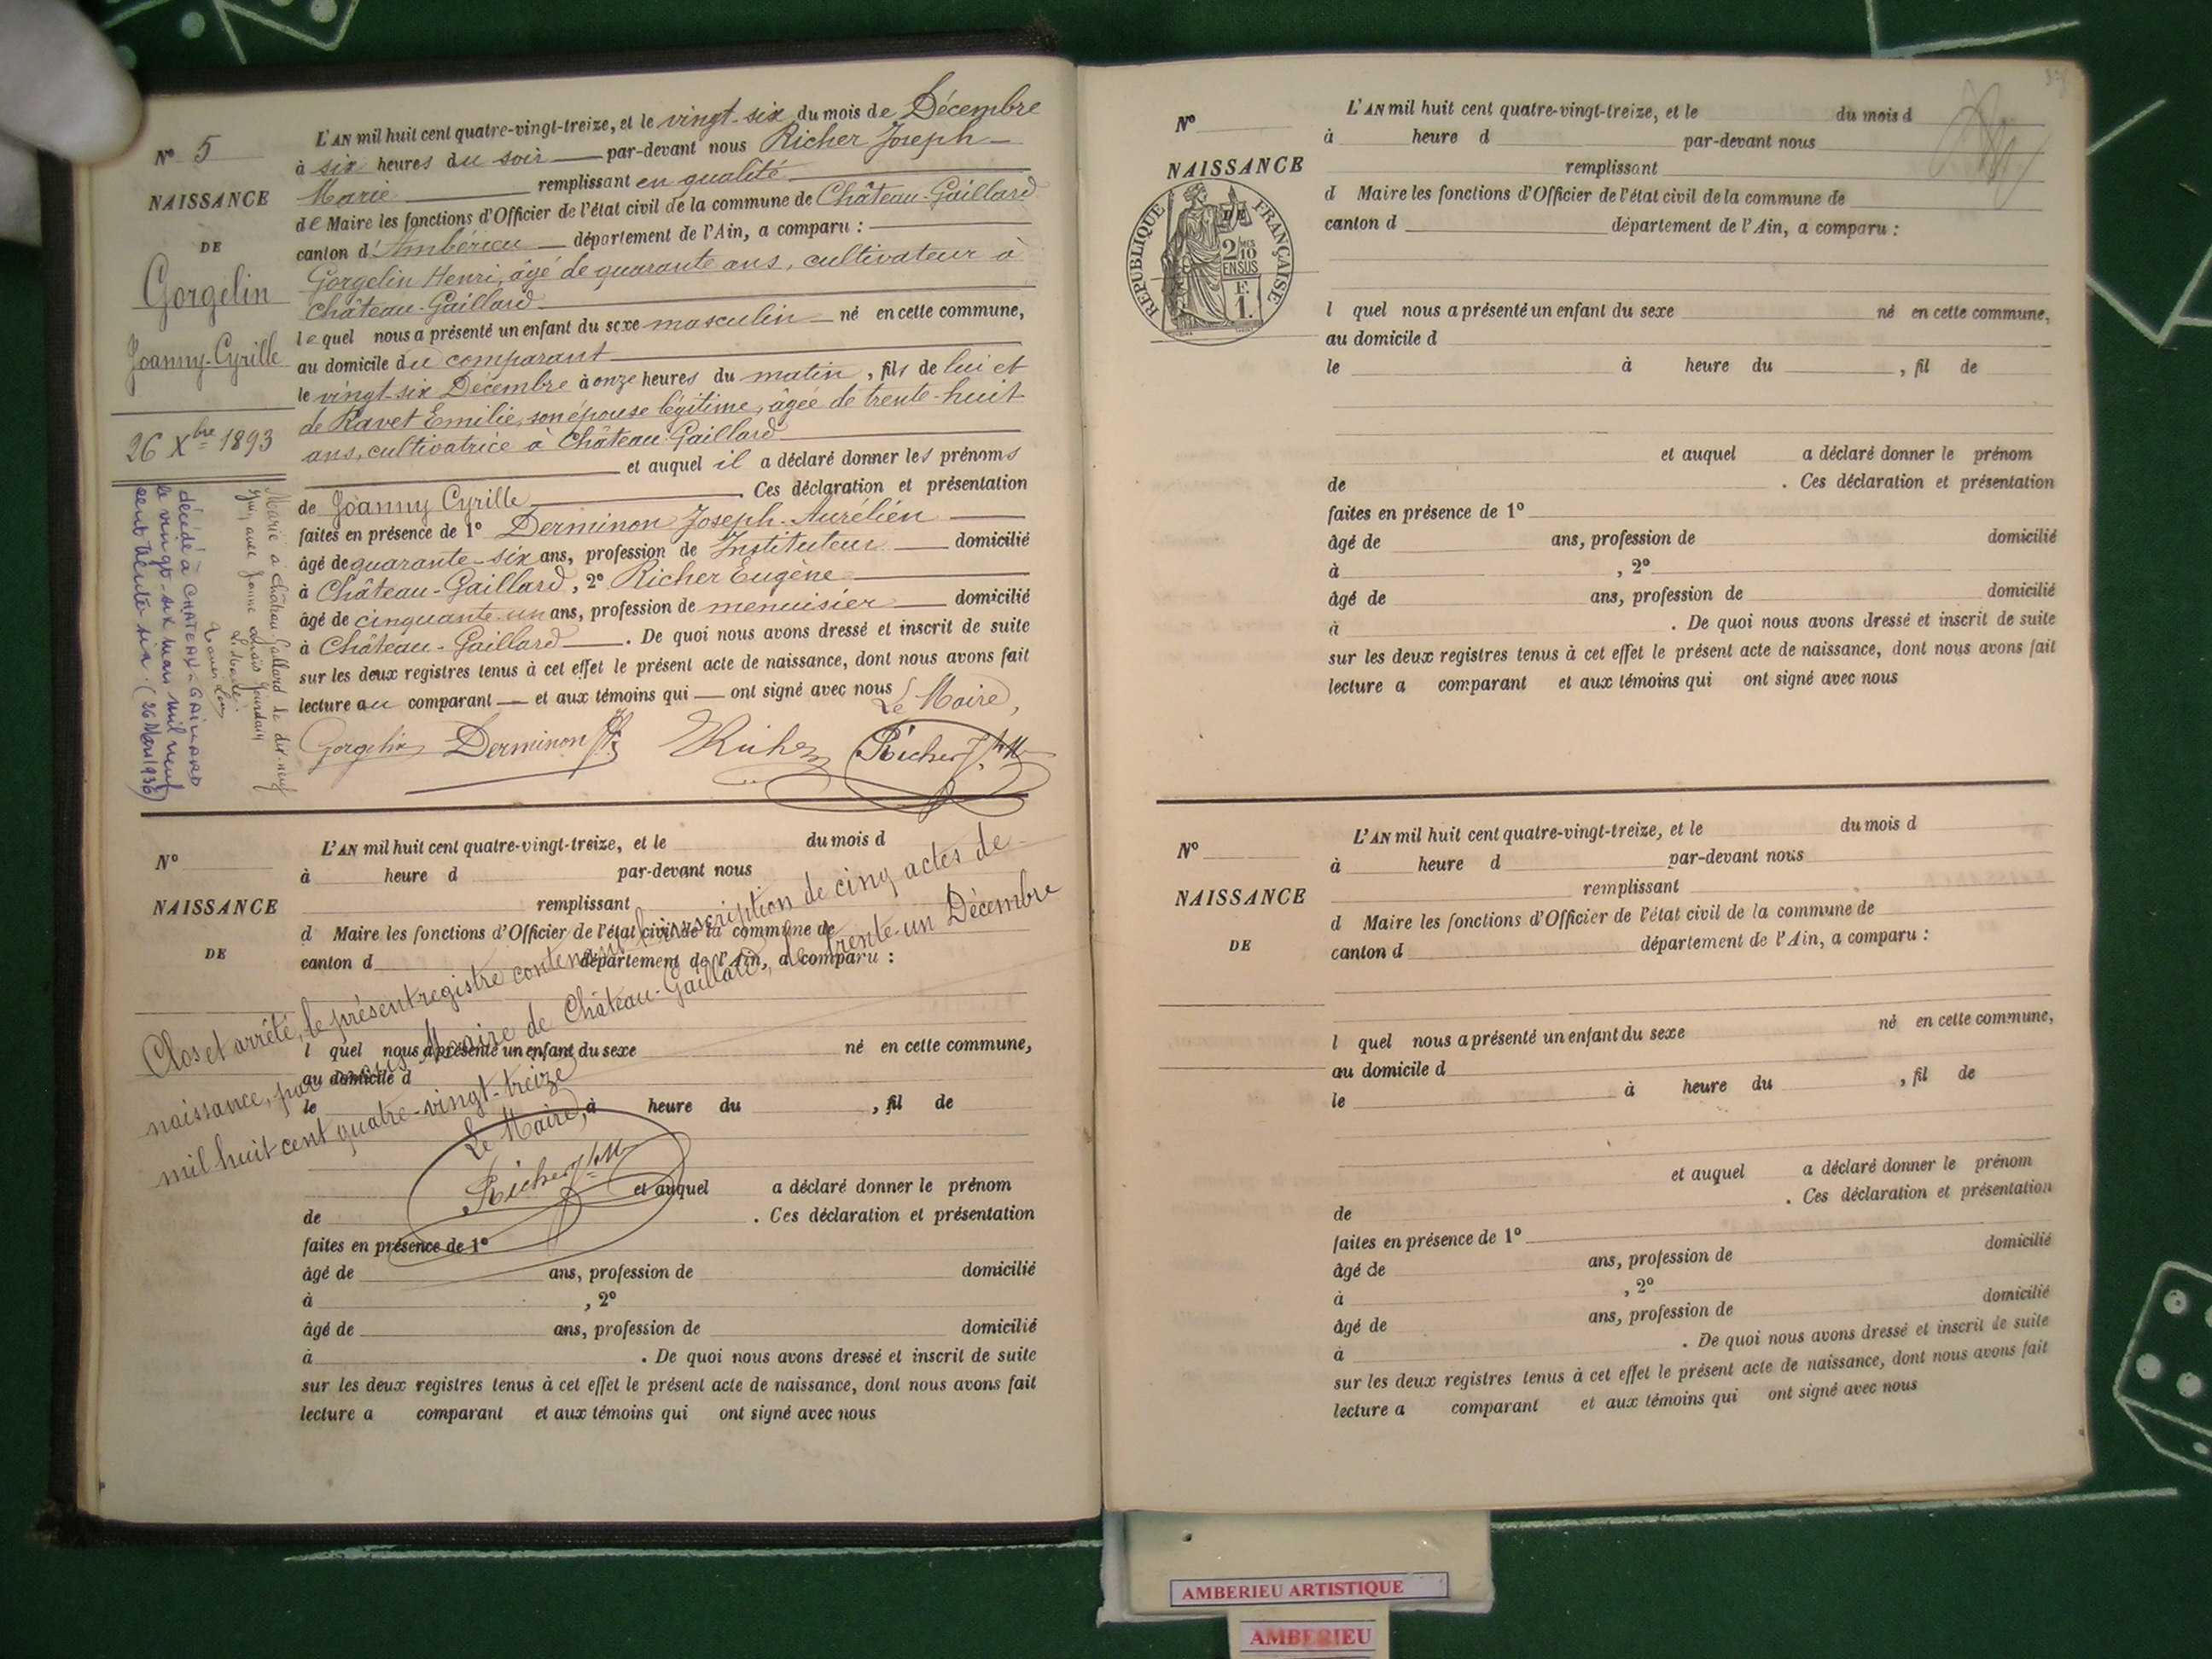 N° 5
NAISSANCE
DE
Gorgelin
Joanny-Cyrille
26 Xbre 1893
L'AN mil huit cent quatre-vingt-treize, et le vingt-six du mois de Décembre
à six heures du soir par-devant nous Richer Joseph
Marie remplissant en qualité
de Maire les fonctions d'Officier de l'état civil de la commune de Château-Gaillard
canton d'Ambérieu département de l'Ain, a comparu :
Gorgelin Henri, âgé de quarante ans, cultivateur à
Château-Gaillard
lequel nous a présenté un enfant du sexe masculin né en cette commune,
au domicile du comparant
le vingt-six Décembre à onze heures du matin, fils de lui et
de Ravet Emilie, son épouse légitime, âgée de trente-huit
ans, cultivatrice à Château-Gaillard
et auquel il a déclaré donner les prénoms
de Joanny Cyrille. Ces déclaration et présentation
faites en présence de 1° Derminon Joseph-Aurélien
âgé de quarante-six ans, profession de Instituteur domicilié
à Château-Gaillard, 2° Richer Eugène
âgé de cinquante-un ans, profession de menuisier domicilié
à Château-Gaillard. De quoi nous avons dressé et inscrit de suite
sur les deux registres tenus à cet effet le présent acte de naissance, dont nous avons fait
lecture au comparant et aux témoins qui ont signé avec nous
Le Maire,
Gorgelin Derminon Richer Richer J. M.
Marié à Château-Gaillard le dix-neuf
avec Jeanne
décédé à CHATEAU-GAILLARD
le vingt-six Mars mil neuf
cent trente six. (26 Mars 1936)
N°
NAISSANCE
DE
L'AN mil huit cent quatre-vingt-treize, et le du mois d
à heure d par-devant nous
remplissant
d Maire les fonctions d'Officier de l'état civil de la commune de
canton d département de l'Ain, a comparu :
l quel nous a présenté un enfant du sexe né en cette commune,
au domicile d
le à heure du , fil de
et auquel a déclaré donner le prénom
de . Ces déclaration et présentation
faites en présence de 1°
âgé de ans, profession de domicilié
à , 2°
âgé de ans, profession de domicilié
à . De quoi nous avons dressé et inscrit de suite
sur les deux registres tenus à cet effet le présent acte de naissance, dont nous avons fait
lecture a comparant et aux témoins qui ont signé avec nous
Clos et arrêté, le présent registre contenant l'inscription de cinq actes de
naissance, par nous Maire de Château-Gaillard, le trente-un Décembre
mil huit cent quatre-vingt-treize
Le Maire,
Richer J. M.
N°
NAISSANCE
REPUBLIQUE FRANÇAISE
2/10
EN SUS
F.
1.
L'AN mil huit cent quatre-vingt-treize, et le du mois d
à heure d par-devant nous
remplissant
d Maire les fonctions d'Officier de l'état civil de la commune de
canton d département de l'Ain, a comparu :
l quel nous a présenté un enfant du sexe né en cette commune,
au domicile d
le à heure du , fil de
et auquel a déclaré donner le prénom
de . Ces déclaration et présentation
faites en présence de 1°
âgé de ans, profession de domicilié
à , 2°
âgé de ans, profession de domicilié
à . De quoi nous avons dressé et inscrit de suite
sur les deux registres tenus à cet effet le présent acte de naissance, dont nous avons fait
lecture a comparant et aux témoins qui ont signé avec nous
N°
NAISSANCE
DE
L'AN mil huit cent quatre-vingt-treize, et le du mois d
à heure d par-devant nous
remplissant
d Maire les fonctions d'Officier de l'état civil de la commune de
canton d département de l'Ain, a comparu :
l quel nous a présenté un enfant du sexe né en cette commune,
au domicile d
le à heure du , fil de
et auquel a déclaré donner le prénom
de . Ces déclaration et présentation
faites en présence de 1°
âgé de ans, profession de domicilié
à , 2°
âgé de ans, profession de domicilié
à . De quoi nous avons dressé et inscrit de suite
sur les deux registres tenus à cet effet le présent acte de naissance, dont nous avons fait
lecture a comparant et aux témoins qui ont signé avec nous
AMBERIEU ARTISTIQUE
AMBERIEU